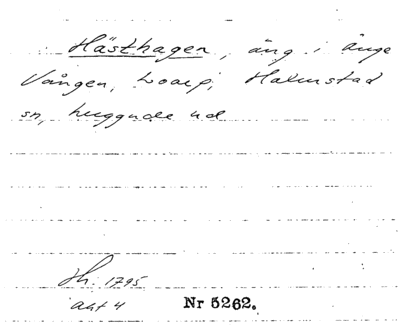 Hästhagen, äng i Änge
Vången, Loarp, Halmstad
sn, Luggude hd
Hh. 1795
akt 4 Nr 5262.